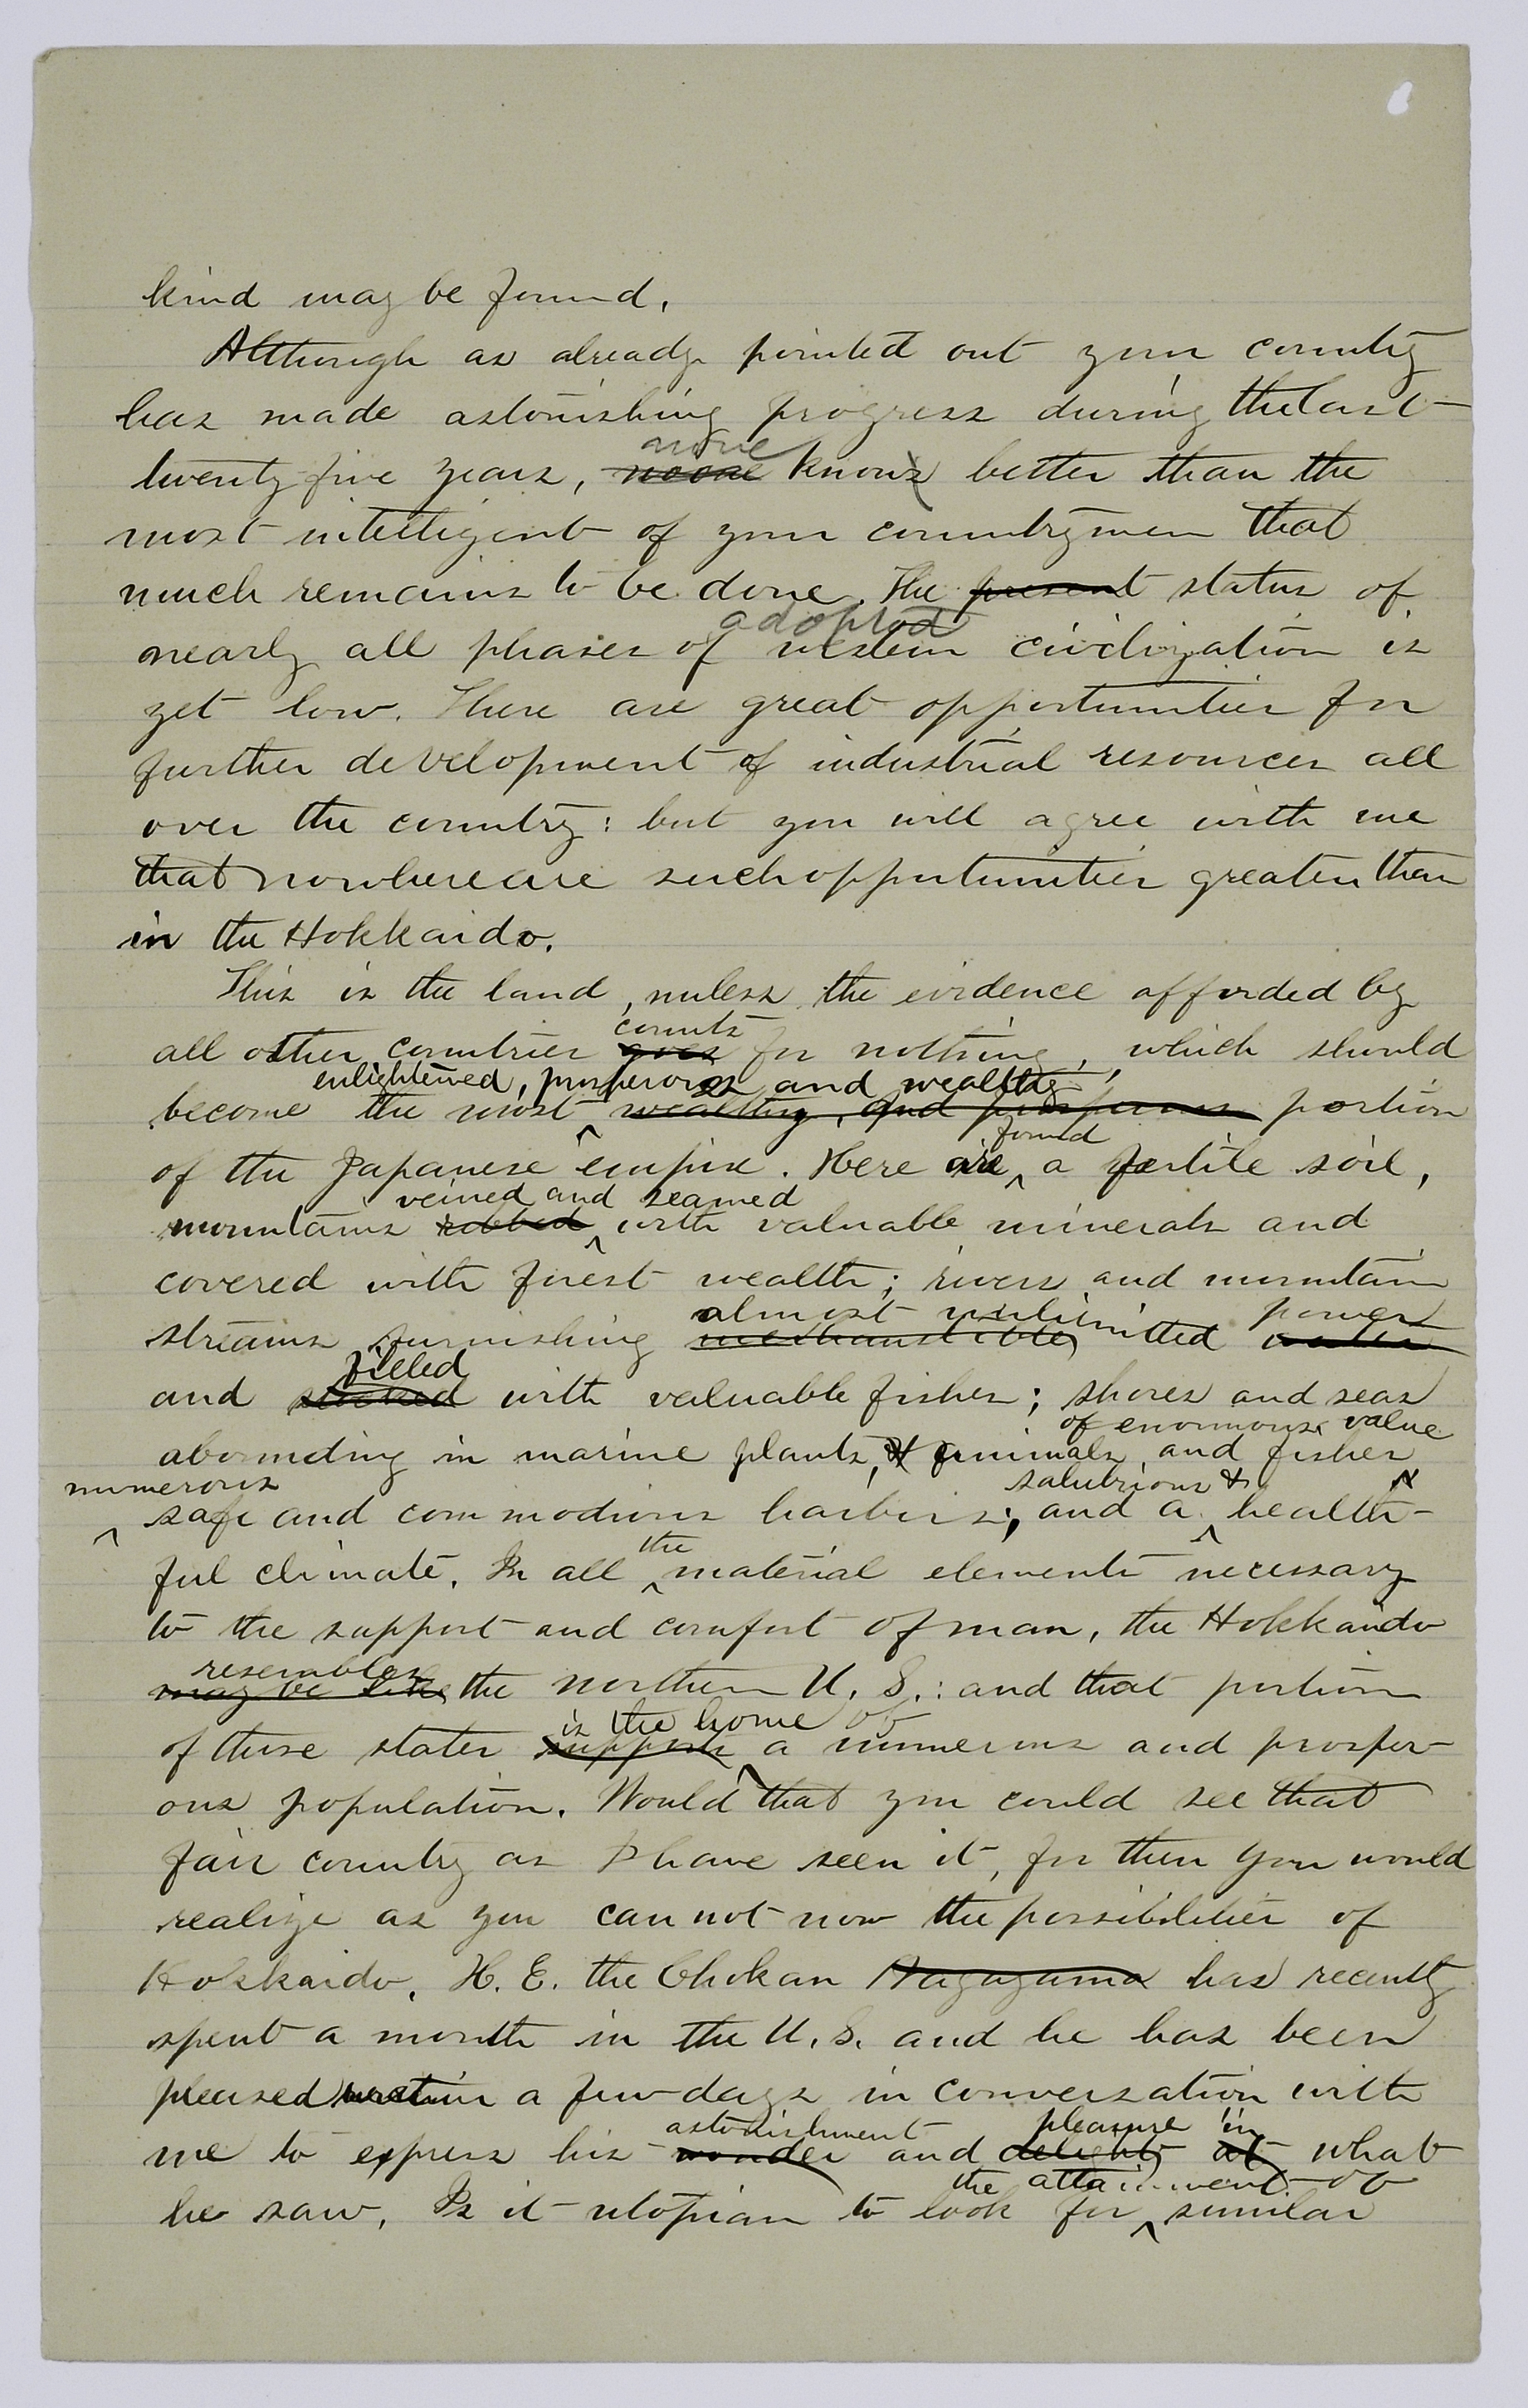 kind may be found.
Although as already pointed out your country
has made astonishing progress during the last
none
twenty-five years, know better than the
most intelligent of your countrymen that
much remains to be done. The present status of
adopted
nearly all phases of western civilization is
yet low. There are great opportunities for
further development of industrial resources all
over the country: but you will agree with me
that nowhere are such opportunities greater than
in the Hokkaido.
This is the land, unless the evidence afforded by
counts
all other countries goes for nothing, which should
enlightened, prosperous and wealthy,
become the most wealthy, and prosperous portion
found
of the Japanese empire. Here are a fertile soil,
veined and seamed
mountains robbed with valuable minerals and
covered with forest wealth; rivers and mountain
almost unlimitted power
streams furnishing inexhaustible water
filled
and stocked with valuable fishes; shores and seas
of enormous value
abounding in marine plants, & animals, and fishes
numerous salubrious &
safe and commodious harbors; and a health-
ful climate. In all
the
material elements necessary
to the support and comfort of man, the Hokkaido
resembles
may be like the northern U. S.: and that portion
is the home of
of those states supports a numerous and prosper-
ous population. Would that you could see that
fair country as I have seen it, for then you would
realize as you can not now the possibilities of
Hokkaido. H. E. the Chokan Nagayama has recently
spent a month in the U. S. and he has been
pleased within a few days in conversation with
astonishment pleasure in
me to express his wonder and delight at what
the attainment of
he saw. Is it utopian to look for similar